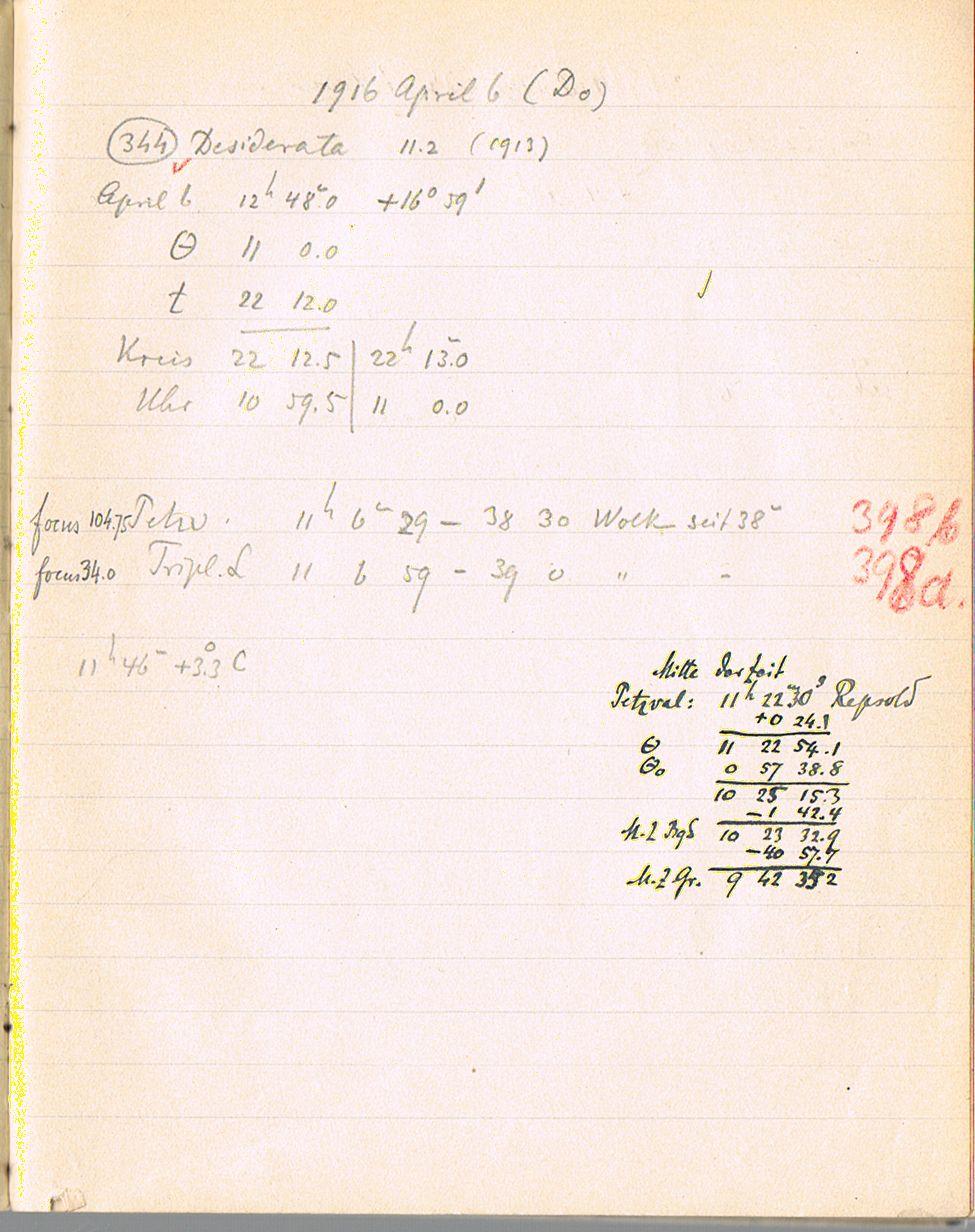 1916 April 6 (Do)
344 Desiderata 11.2 (1913)
April 6 12h 48m.0 +16° 59'
Θ 11 0.0
t 22 12.0
Kreis 22 12.5 | 22h 13m.0
Uhr 10 59.5 | 11 0.0
focus 104.75 Petzv. 11h 6m 29 – 38 30 Wolk seit 38m 398b
focus 34.0 Tripl. L 11 6 59 – 39 0 " – 398a.
11h 46m +3.°3 C
Mitte der Zeit
Petzval: 11h 22m 30s Repsold
+0 24.1
Θ 11 22 54.1
Θ₀ 0 57 38.8
10 25 15.3
–1 42.4
M.Z Bgd 10 23 32.9
–40 57.7
M.Z Gr. 9 42 35.2